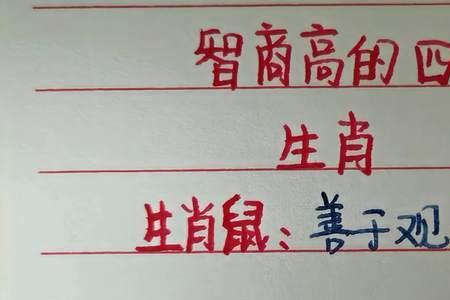 智商高的四
生肖
生肖鼠：善于观